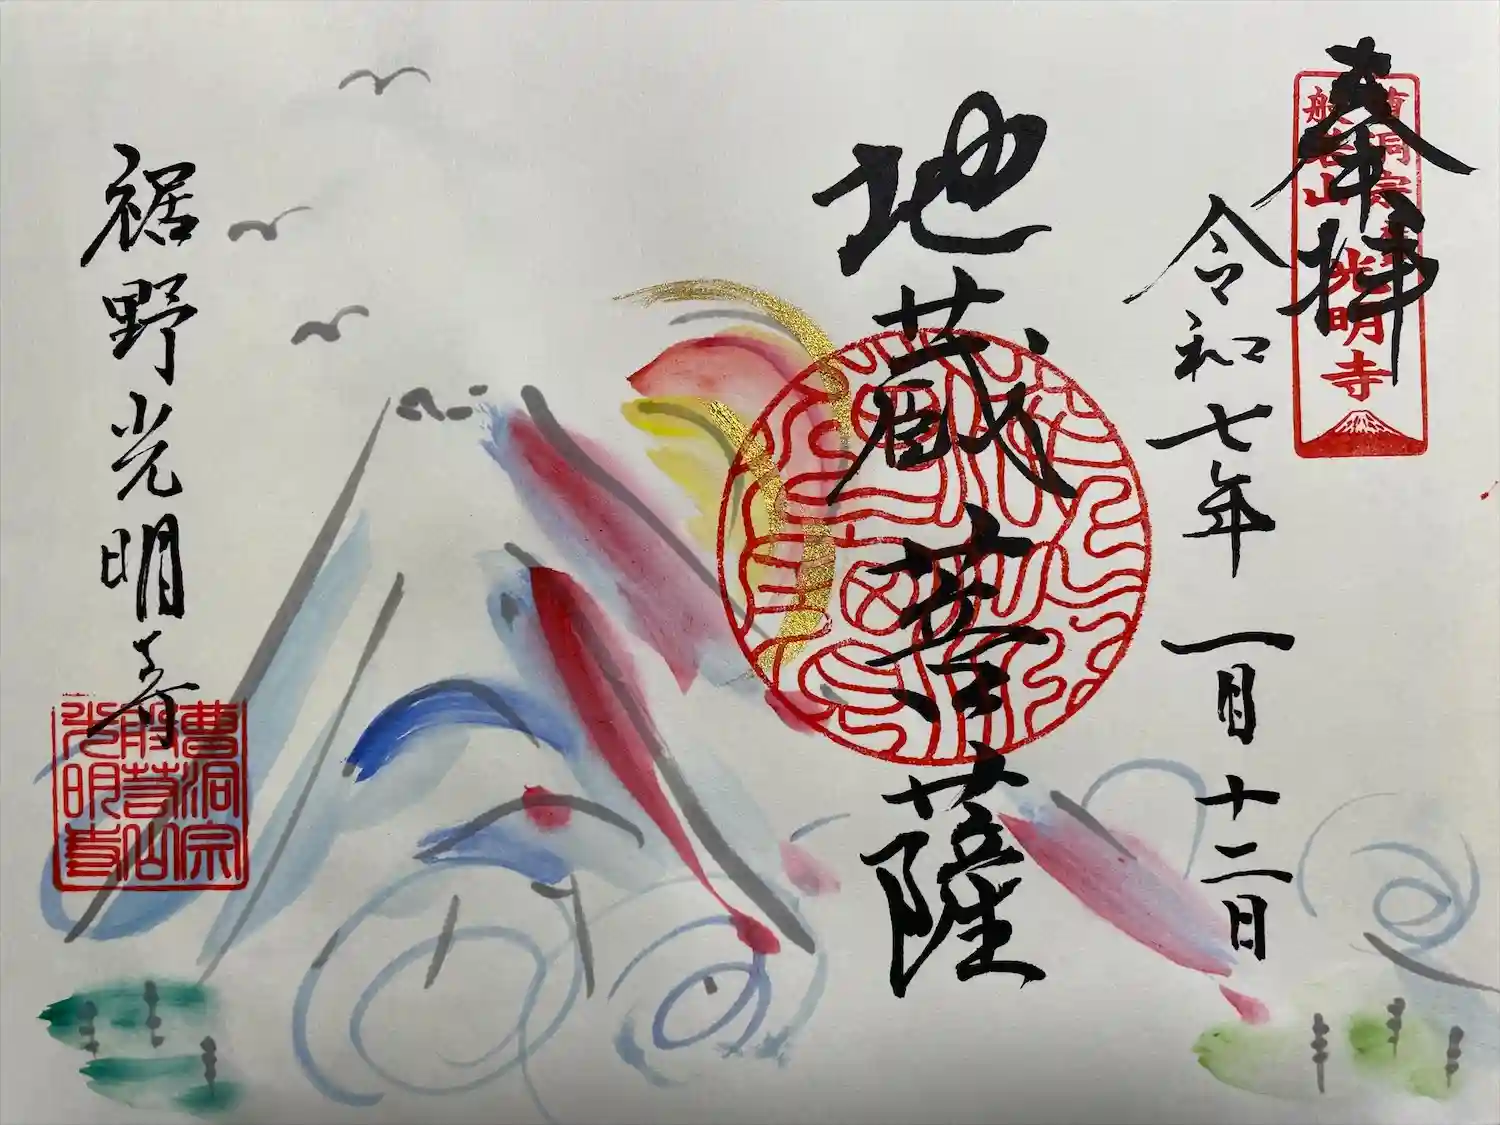 奉拝
曹洞宗
般若山
光明寺
令和七年 一月十二日
地蔵菩薩
裾野光明寺
曹洞宗
般若山
光明寺